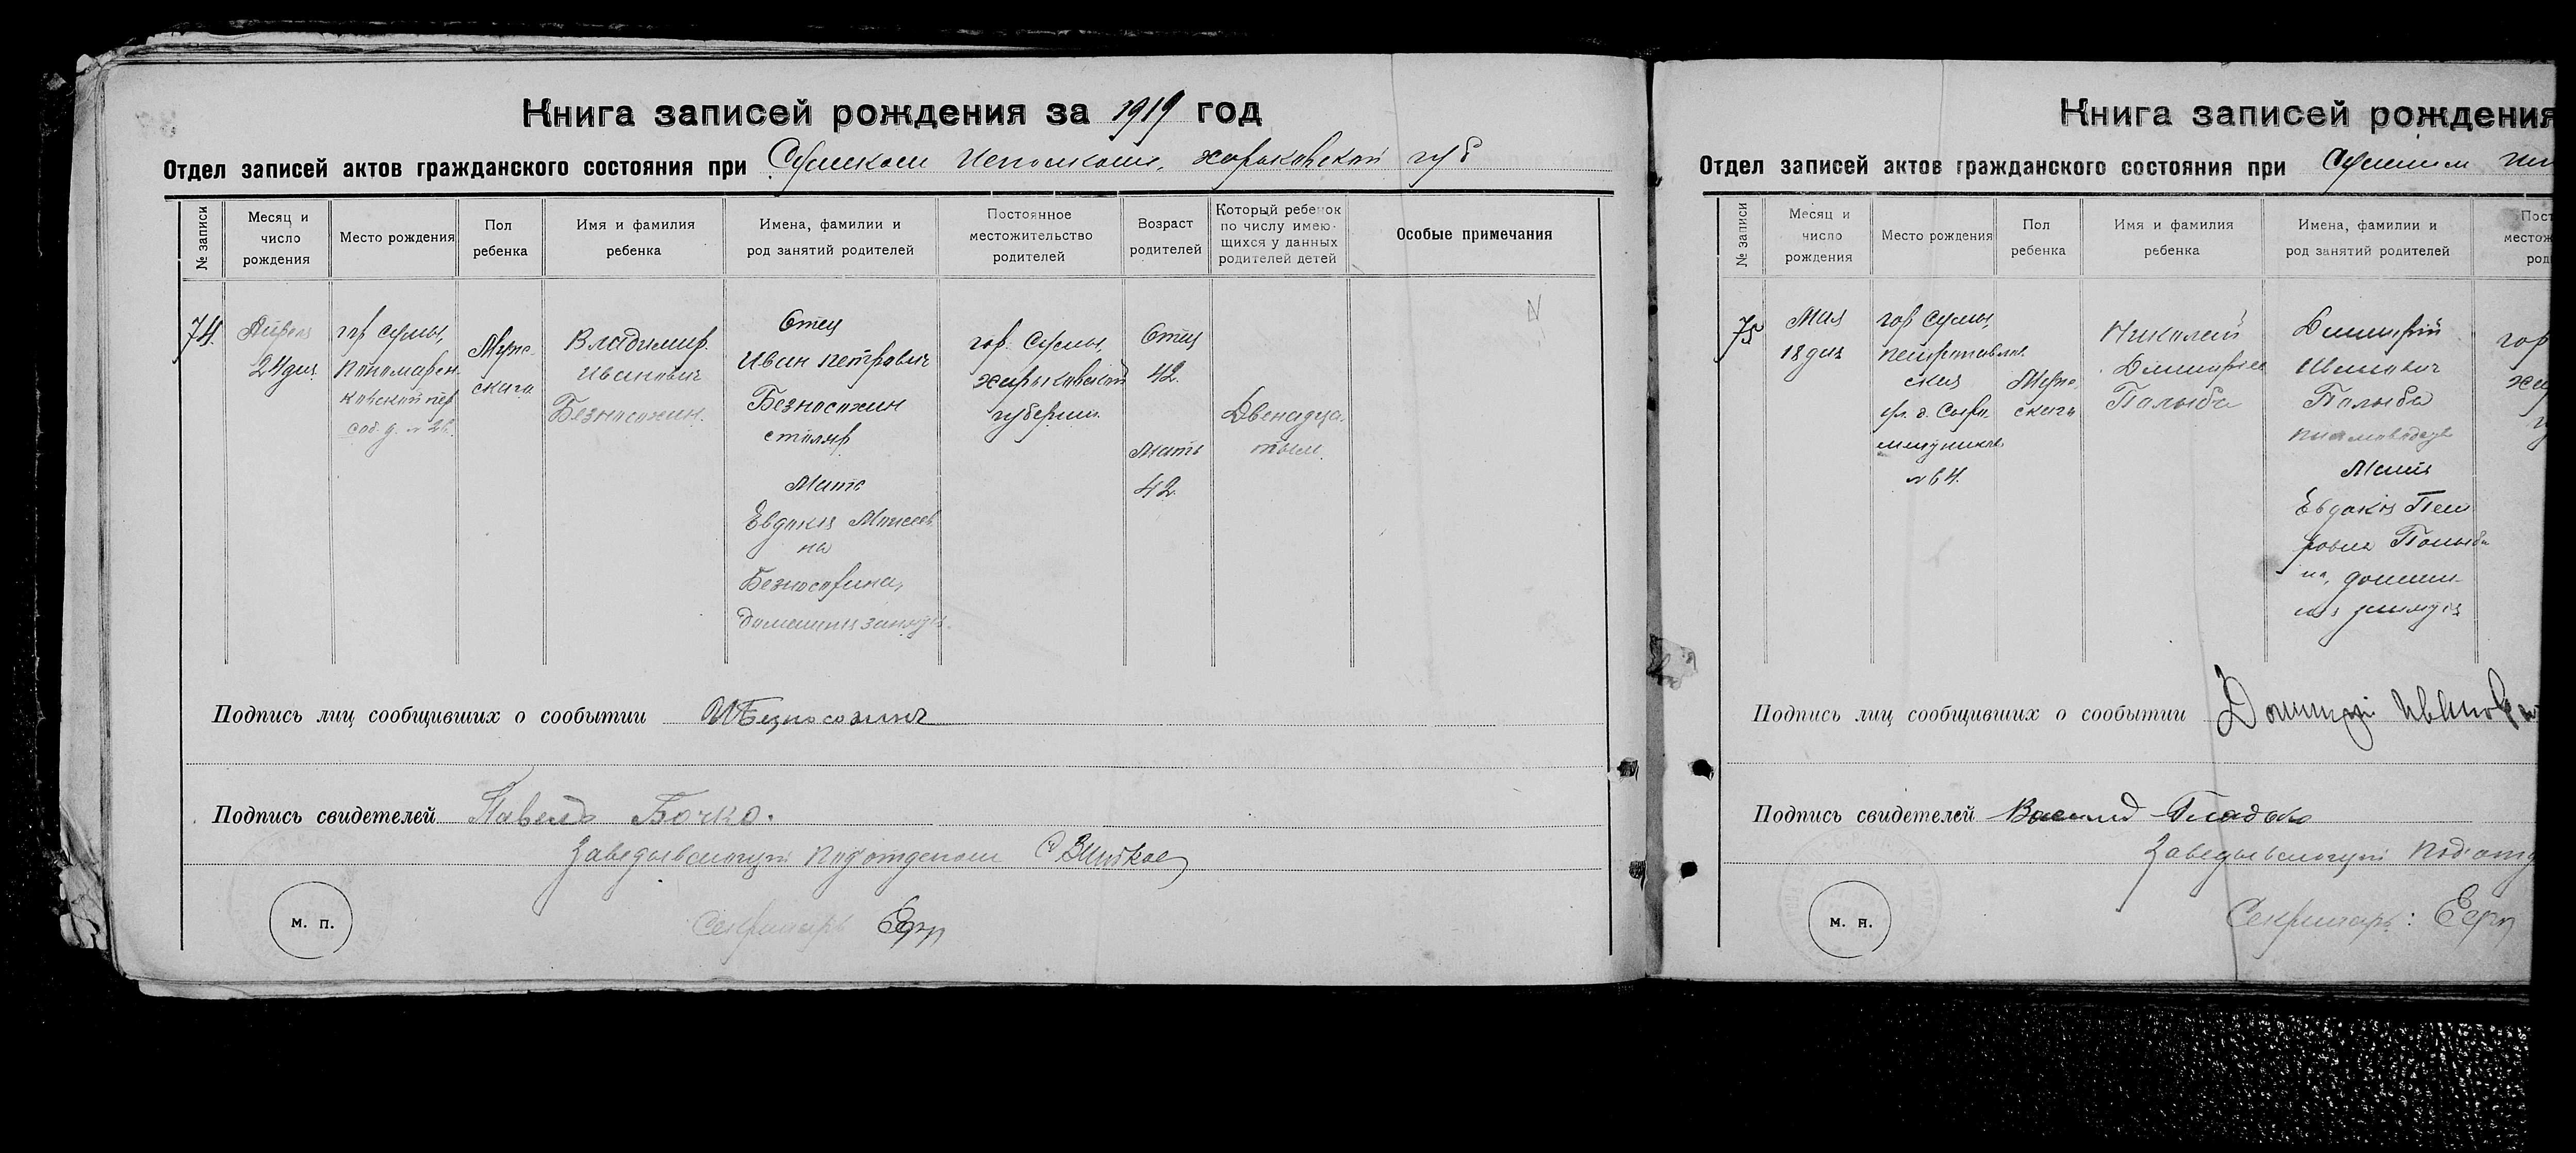 Книга записей рождения за 1919 год
Отдел записей актов гражданского состояния при Сумском Исполкоме, Харьковской губ
№ записи
Месяц и число рождения
Место рождения
Пол ребенка
Имя и фамилия ребенка
Имена, фамилии и род занятий родителей
Постоянное местожительство родителей
Возраст родителей
Который ребенок по числу имеющихся у данных родителей детей
Особые примечания
74.
Апреля
24 дня
гор Сумы,
Пономарен
ковский пер
соб. д. №
Мужс
ского
Владимир
Иванович
Безносожин.
Отец
Иван Петрович
Безносожин
столяр
Мать
Евдокия Моисеев
на
Безносожина,
домашния занятия.
гор. Сумы,
Харьковской
губернии
Отец
42.
Мать
42.
Двенадца
тым.
Подпись лиц сообщивших о событии И Безносожинъ
Подпись свидетелей Павелъ Бочко.
Заведывающий Под'отделом
М. П.
Секретарь
Книга записей рождения
Отдел записей актов гражданского состояния при Сумском
№ записи
Месяц и число рождения
Место рождения
Пол ребенка
Имя и фамилия ребенка
Имена, фамилии и род занятий родителей
Пост
местож
род
75
Мая
18 дня
гор Сумы,
Петропавлов
ская
ул. д.
№ 64.
Мужс
ского
Николай
Дмитриев
Палыба
Димитрий
Иванович
Палыба
Мать
Евдокия Пет
ровна Палыби
на, домаш
ния занятия
гор
Подпись лиц сообщивших о событии Дмитрий Иванов
Подпись свидетелей Василий Гладько
Заведывающий Под'отд
М. П.
Секретарь: